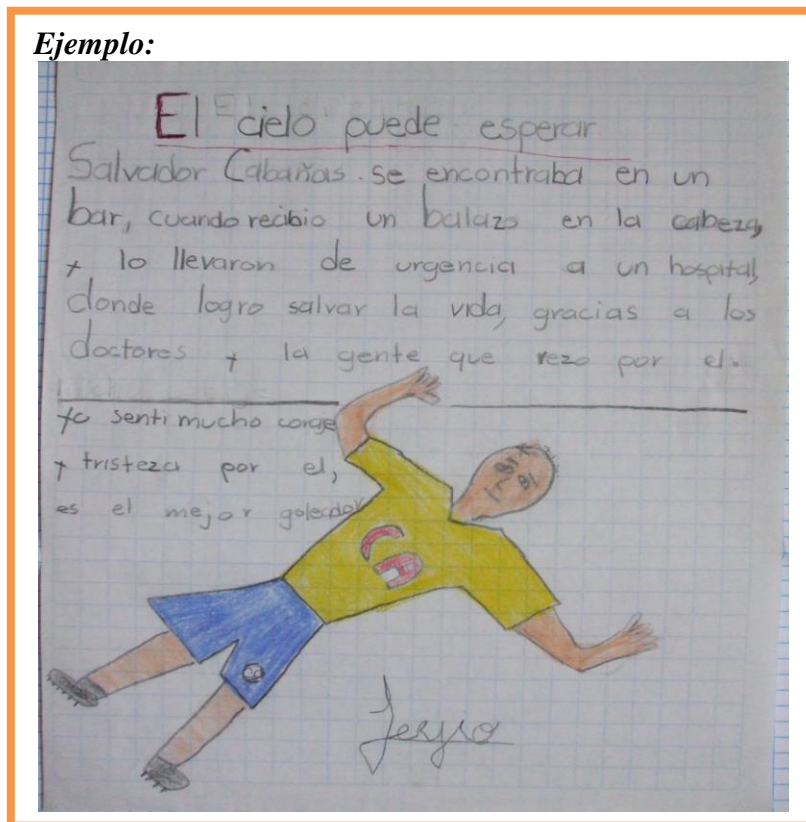 Ejemplo:
El cielo puede esperar
Salvador Cabañas. se encontraba en un
bar, cuando recibio un balazo en la cabeza,
y lo llevaron de urgencia a un hospital,
donde logro salvar la vida, gracias a los
doctores y la gente que rezo por el.
yo senti mucho coraje
y tristeza por el,
es el mejor goleador
CA
Sergio